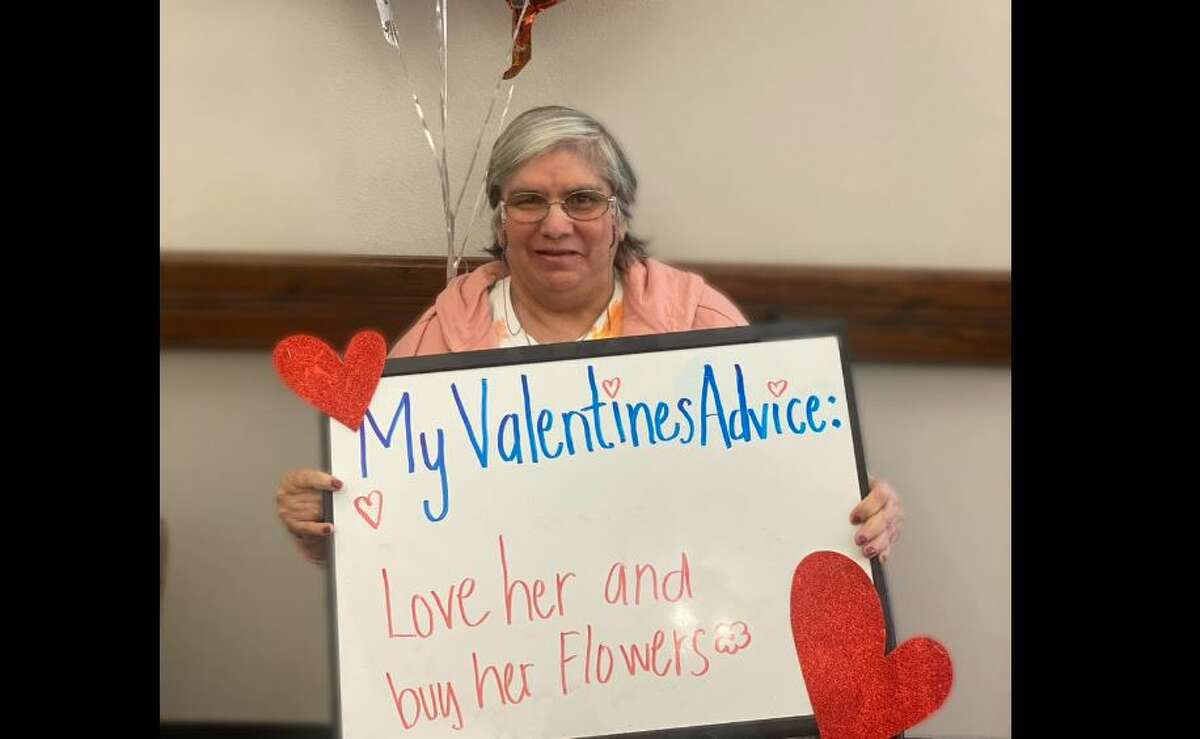 My Valentines Advice:
Love her and
buy her Flowers